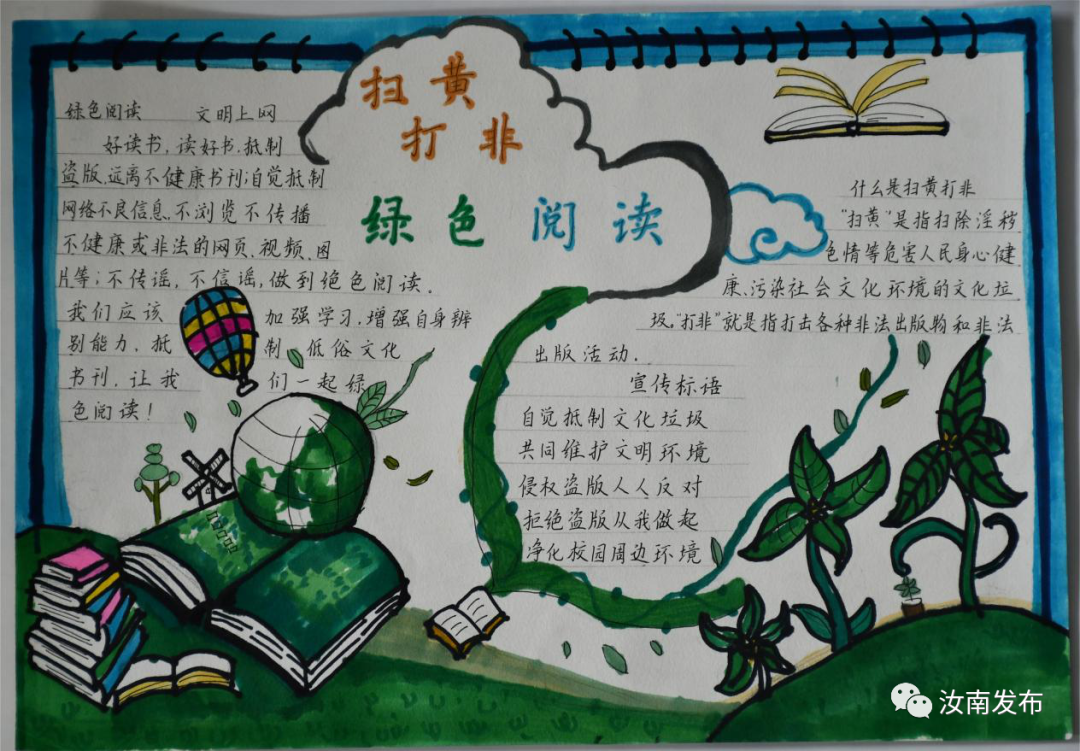 扫黄
打非
绿色阅读
绿色阅读 文明上网
好读书,读好书.抵制
盗版.远离不健康书刊;自觉抵制
网络不良信息.不浏览不传播
不健康或非法的网页.视频.图
片等;不传谣,不信谣,做到绝色阅读.
我们应该 加强学习.增强自身辨
别能力.抵 制 低俗文化
书刊.让我 们一起绿
色阅读!
什么是扫黄打非
"扫黄"是指扫除淫秽
色情等危害人民身心健
康、污染社会文化环境的文化垃
圾."打非"就是指打击各种非法出版物和非法
出版活动.
宣传标语
自觉抵制文化垃圾
共同维护文明环境
侵权盗版人人反对
拒绝盗版从我做起
净化校园周边环境
汝南发布